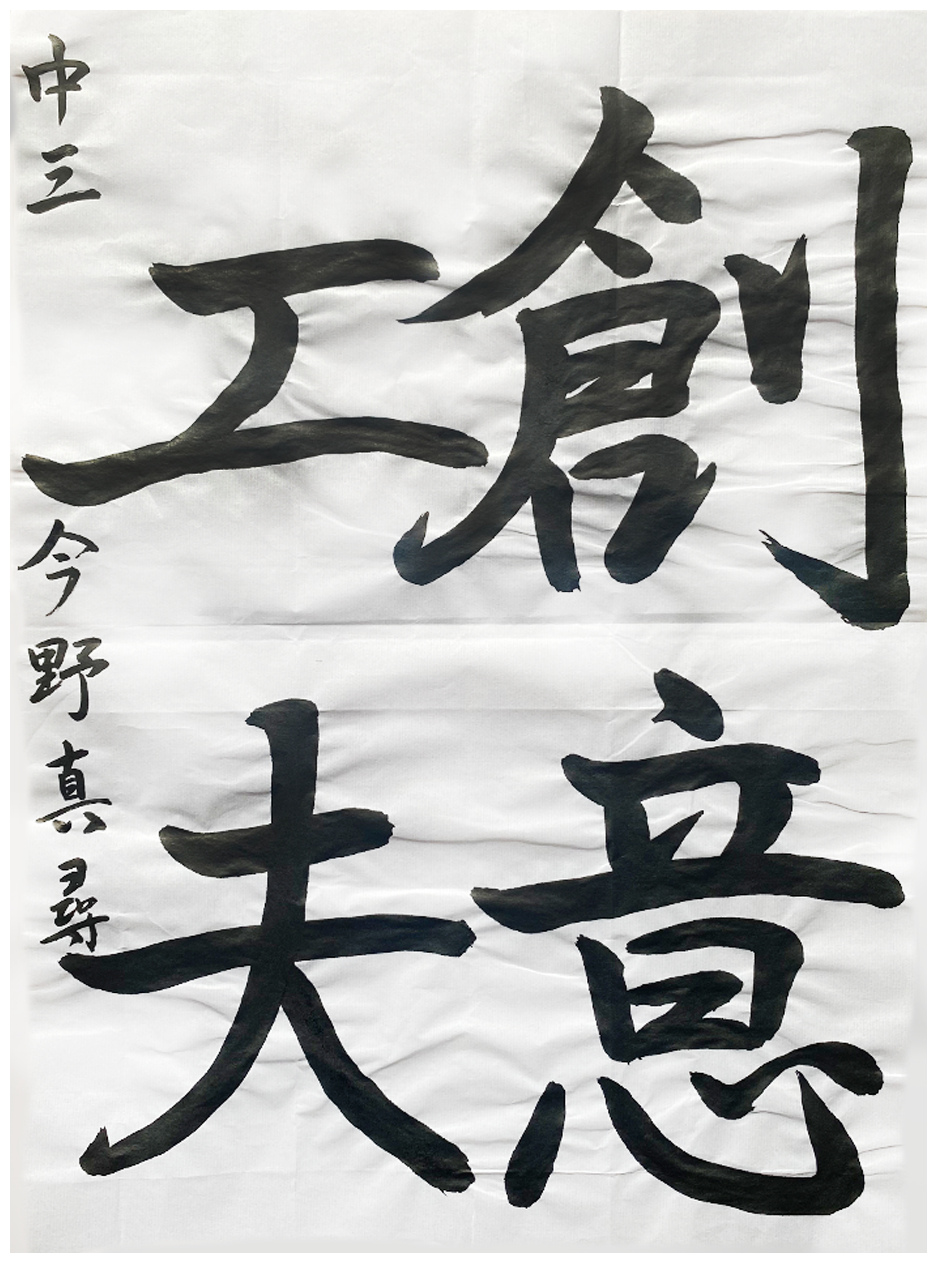 創意
工夫
中三 今野真尋